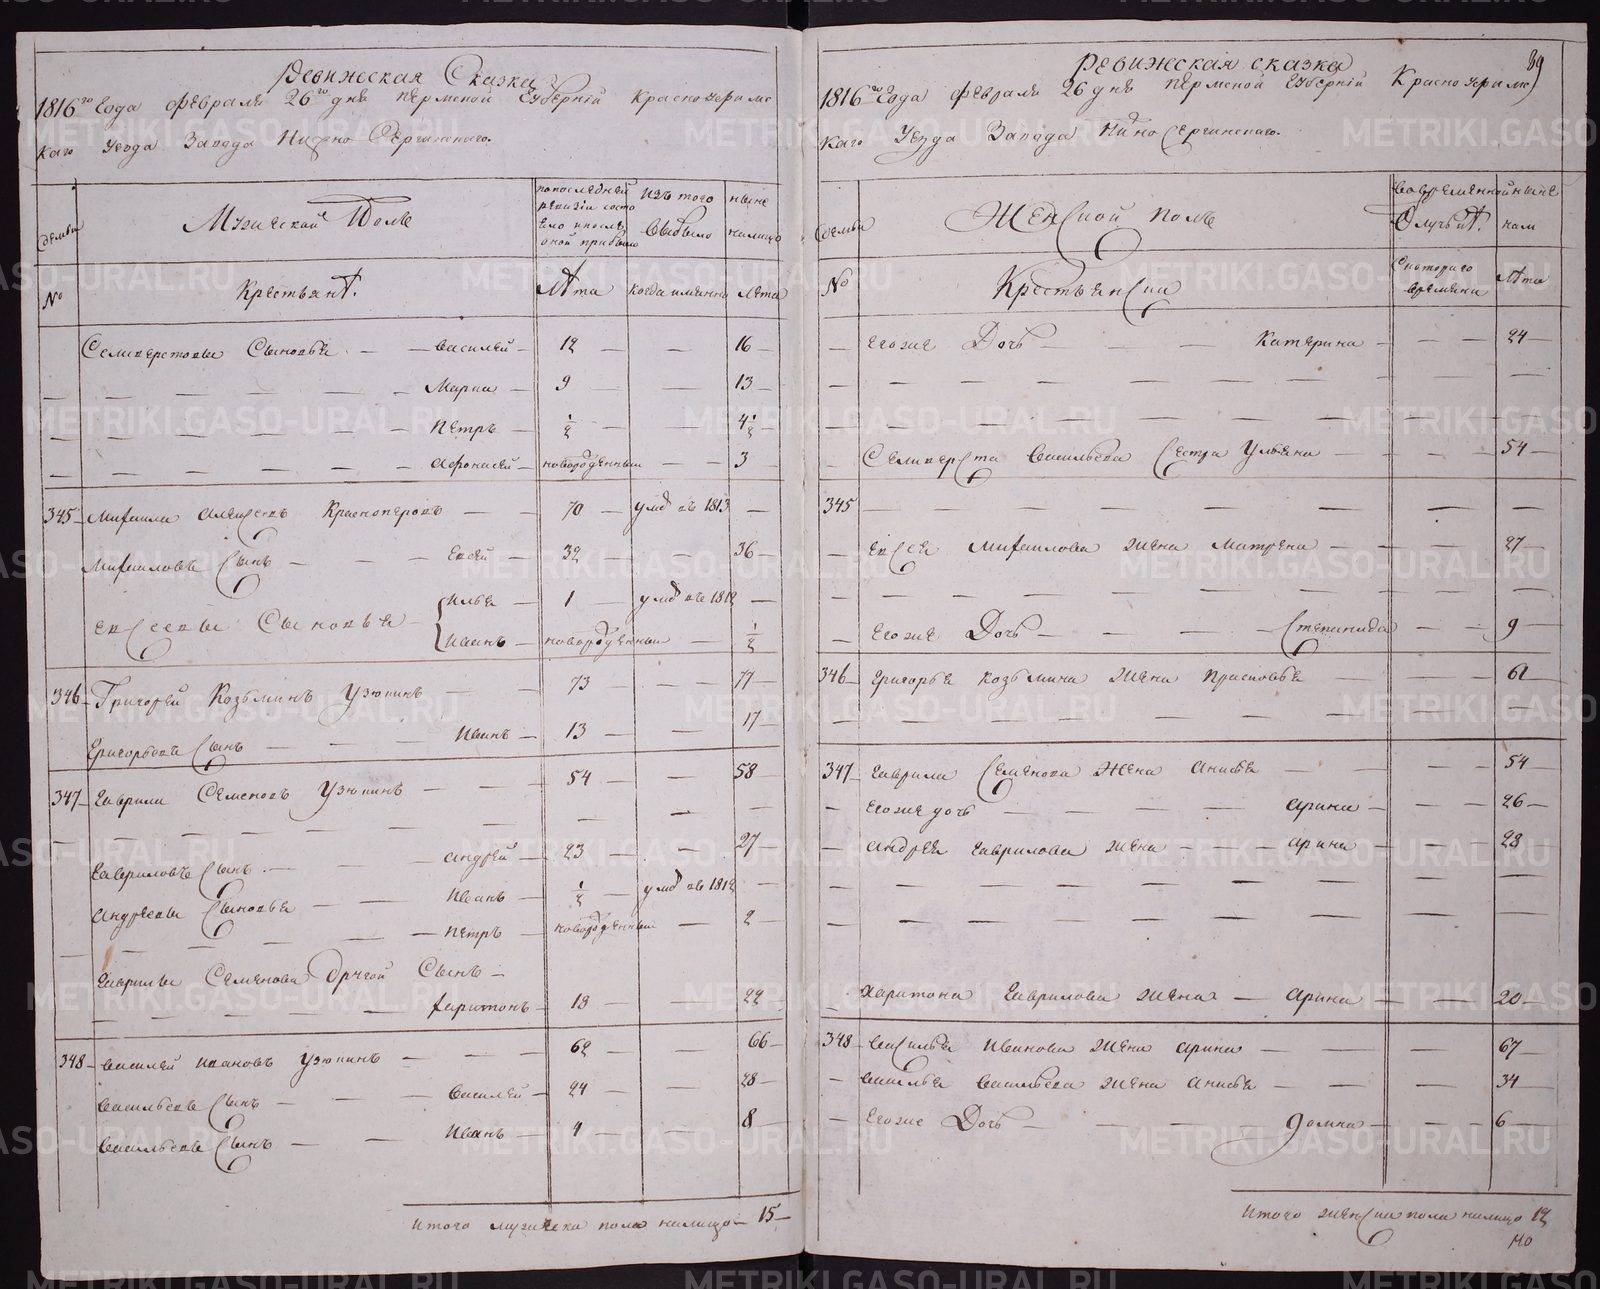 Ревижская Сказка
1816го Года февраля 26го дня Пермской Губерній Красноуфимс
каго Уезда Завода Нижно Сергинскаго.
Семьи
Мужеской Полъ
по последней ревизіи состояло и после оной прибыло
изъ того выбыло
ныне налицо
№
Крестьянъ.
Лѣта
когда имянно
Лѣта
Селиверстовы Сыновья — — Василей — 12 — — 16 —
— — — — — Марка — 9 — — 13 —
— — — — — Петръ — ½ — — 4½
— — — — — Афонасей — новорожденный — — 3 —
345 — Михаила Алексеевъ Красноперовъ — — 70 — умѣ въ 1813 —
Михаиловъ Сынъ — — — Евсей — 32 — — 36 —
Илья — 1 — умѣ въ 1812 —
Евсеевы Сыновья
Иванъ — новорожденный — ½
346 — Григорей Козьминъ Узюпинъ — — 73 — — 77 —
Григорьевъ Сынъ — — — Иванъ — 13 — — 17 —
347 — Гаврила Семеновъ Узюпинъ — — 54 — — 58 —
— — — — — — — — — —
Гавриловъ Сынъ — — — Андрей — 23 — — 27 —
Андреевы Сыновья — — Иванъ — ½ — умѣ въ 1812 —
— — — — — Петръ — новорожденный — 2 —
Гаврилы Семенова Другой Сынъ —
— — — — — Харитонъ — 18 — — 22 —
348 — Василей Ивановъ Узюпинъ — — — 62 — — 66 —
Васильевъ Сынъ — — — Василей — 24 — — 28 —
Васильевъ Сынъ — — Иванъ — 4 — — 8 —
Итого мужеска пола налицо — 15 —
89
Ревижская сказка
1816го Года февраля 26 дня Пермской Губерній Красноуфимс
каго Уезда Завода Нижно Сергинскаго.
Семьи
Женской полъ
во временной отлучкѣ.
ныне нали
№
Крестьянска
С котораго времяни
Лѣта
— Егоже Дочь — — — Катерина — — — 24 —
— — — — — — — — —
— — — — — — — — —
— Селиверста Васильева Сестра Ульяна — — — 54 —
345 — — — — — — — — —
— Евсея Михаилова жена Матрена — — — 27 —
— — — — — — — — —
— Егоже Дочь — — — Степанида — — 9 —
346 — Григорья Козьмина жена Прасковья — — — 61 —
— — — — — — — — —
347 — Гаврила Семенова жена Анисья — — — 54 —
— Егоже дочь — — — Арина — — — 26 —
— Андрея Гаврилова жена — — — Арина — — — 28 —
— — — — — — — — —
— — — — — — — — —
— Харитона Гаврилова жена — Арина — — — 20 —
348 — Василья Иванова жена Арина — — — 67 —
— Василья Васильева жена Анисья — — — 34 —
— Егоже Дочь — — — Домна — — — 6 —
Итого женска пола налицо 12
METRIKI.GASO-URAL.RU